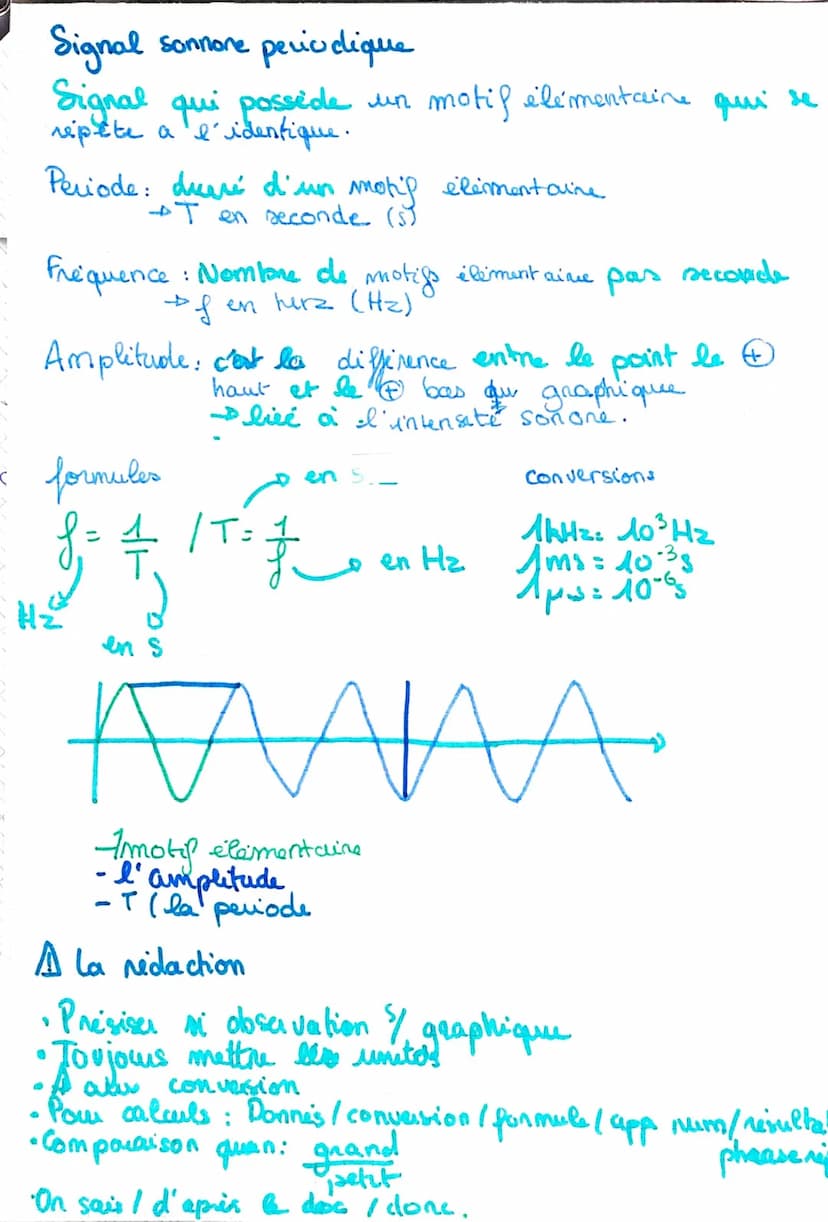 Signal sonnore periodique
Signal qui possède un motif élémentaire qui se
répète a l'identique.
Periode : dureé d'un motif élémentaire
→ T en seconde (s)
Fréquence : Nombre de motifs élémentaire par seconde
→ f en herz (Hz)
Amplitude : c'est la différence entre le point le ⊕
haut et le ⊕ bas du graphique
→ lieé à l'intensité sonore.
formules
en s
conversions
f = 1/T / T = 1/f
en Hz
Hz
en s
1kHz = 10³ Hz
1ms = 10⁻³s
1µs = 10⁻⁶s
1 motif élémentaire
- l'amplitude
- T (la periode
⚠ La rédaction
• Présiser si observation s/ graphique
• Toujours mettre les unités
• ⚠ aux conversion
• Pour calculs : Donnés / conversion / formule / app num / résulta
phrase
• Comparaison quan : grand/petit
• On sais / d'après le doc / donc.